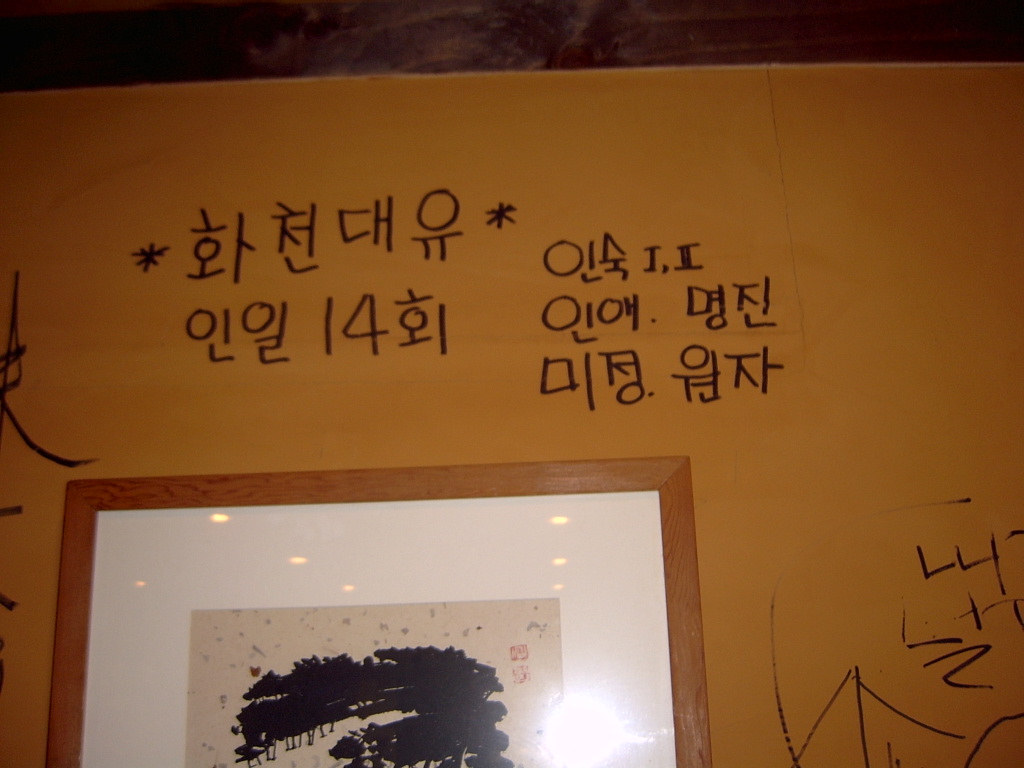 *화천대유*
인일 14회
인숙 I, II
인애. 명진
미정. 월자